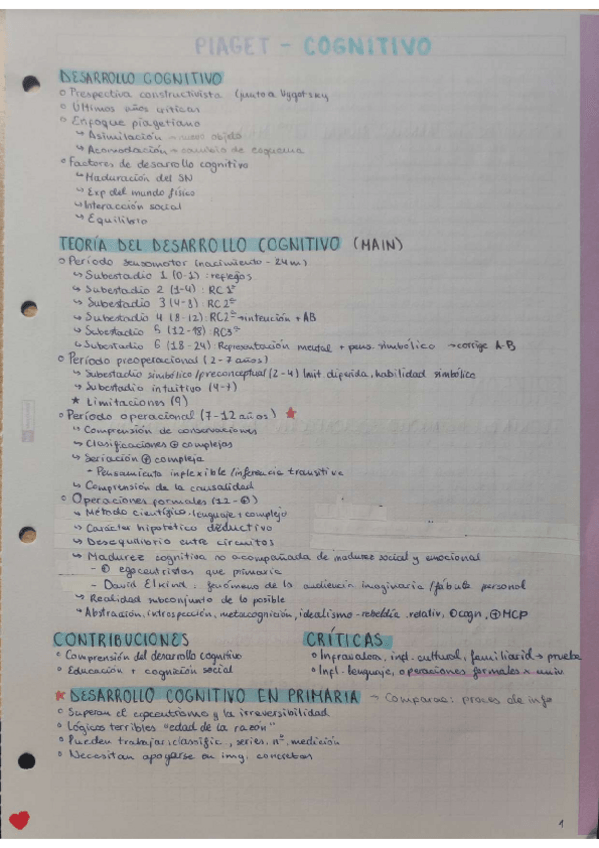 PIAGET - COGNITIVO
DESARROLLO COGNITIVO
○ Prespectiva constructivista (junto a Vygotsky
○ Últimos años críticas
○ Enfoque piagetiano
↳ Asimilación → nuevo objeto
↳ Acomodación → cambio de esquema
○ Factores de desarrollo cognitivo
↳ Maduración del SN
↳ Exp del mundo físico
↳ Interacción social
↳ Equilibrio
TEORÍA DEL DESARROLLO COGNITIVO (MAIN)
○ Período sensomotor (nacimiento - 24m)
↳ Subestadio 1 (0-1) : reflejos
↳ Subestadio 2 (1-4) : RC 1ª
↳ Subestadio 3 (4-8) RC2ª
↳ Subestadio 4 (8-12): RC2ª → intención + AB
↳ Subestadio 5 (12-18) RC3ª
↳ Subestadio 6 (18-24) Representación mental + pens. simbólico → corrige A-B
○ Período preoperacional (2-7 años)
↳ Subestadio simbólico/preconceptual (2-4) Imit. diferida, habilidad simbólica
↳ Subestadio intuitivo (4-7)
★ Limitaciones (9)
○ Período operacional (7-12 años) ★
↳ Comprensión de conservaciones
↳ Clasificaciones ⊕ complejas
↳ Seriación ⊕ compleja
- Pensamiento inflexible/inferencia transitiva
↳ Comprensión de la causalidad
○ Operaciones formales
↳ Método científico, lenguaje + complejo
↳ Carácter hipotético deductivo
↳ Desequilibrio entre circuitos
↳ Madurez cognitiva no acompañada de madurez social y emocional
- egocentristas que primaria
- David Elkind : fenómeno de la audiencia imaginaria /fábula personal
↳ Realidad subconjunto de lo posible
↳ Abstracción, introspección, metacognición, idealismo - rebeldía, relativ, cogn, ⊕ MCP
CONTRIBUCIONES
○ Comprensión del desarrollo cognitivo
○ Educación + cognición social
CRÍTICAS
○ Infravalora, inf. cultural, familiarid → prueba
○ Infl. lenguaje, operaciones formales × univ
★ DESARROLLO COGNITIVO EN PRIMARIA → Comparac: proces de info
○ Superan el egocentrismo y la irreversibilidad
○ Lógicos terribles "edad de la razón"
○ Pueden trabajar: classific, series, nº, medición
○ Necesitan apoyarse en img. concretas
1